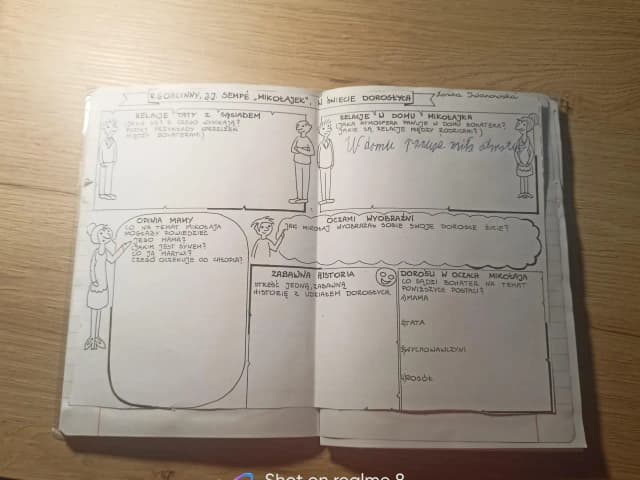 R. GOŚCINNY, J.J. SEMPÉ „MIKOŁAJEK", W ŚWIECIE DOROSŁYCH
RELACJE TATY Z SĄSIADEM
JAKIE SĄ? Z CZEGO WYNIKAJĄ?
PODAJ PRZYKŁADY SPRZECZEK
MIĘDZY BOHATERAMI?
RELACJE W DOMU MIKOŁAJKA
JAKA ATMOSFERA PANUJE W DOMU BOHATERA?
JAKIE SĄ RELACJE MIĘDZY RODZICAMI?
W domu panuje miła
OPINIA MAMY
CO NA TEMAT MIKOŁAJA
MOGŁABY POWIEDZIEĆ
JEGO MAMA?
JAKIM JEST SYNEM?
CO JĄ MARTWI?
CZEGO OCZEKUJE OD CHŁOPCA?
OCZAMI WYOBRAŹNI
JAK MIKOŁAJ WYOBRAŻAŁ SOBIE SWOJE DOROSŁE ŻYCIE?
ZABAWNA HISTORIA
STREŚĆ JEDNĄ, ZABAWNĄ
HISTORIĘ Z UDZIAŁEM DOROSŁYCH
DOROŚLI W OCZACH MIKOŁAJA
CO SĄDZI BOHATER NA TEMAT
PONIŻSZYCH POSTACI?
1) MAMA
2) TATA
3) WYCHOWAWCZYNI
4) ROSÓŁ
Shot on realme 8